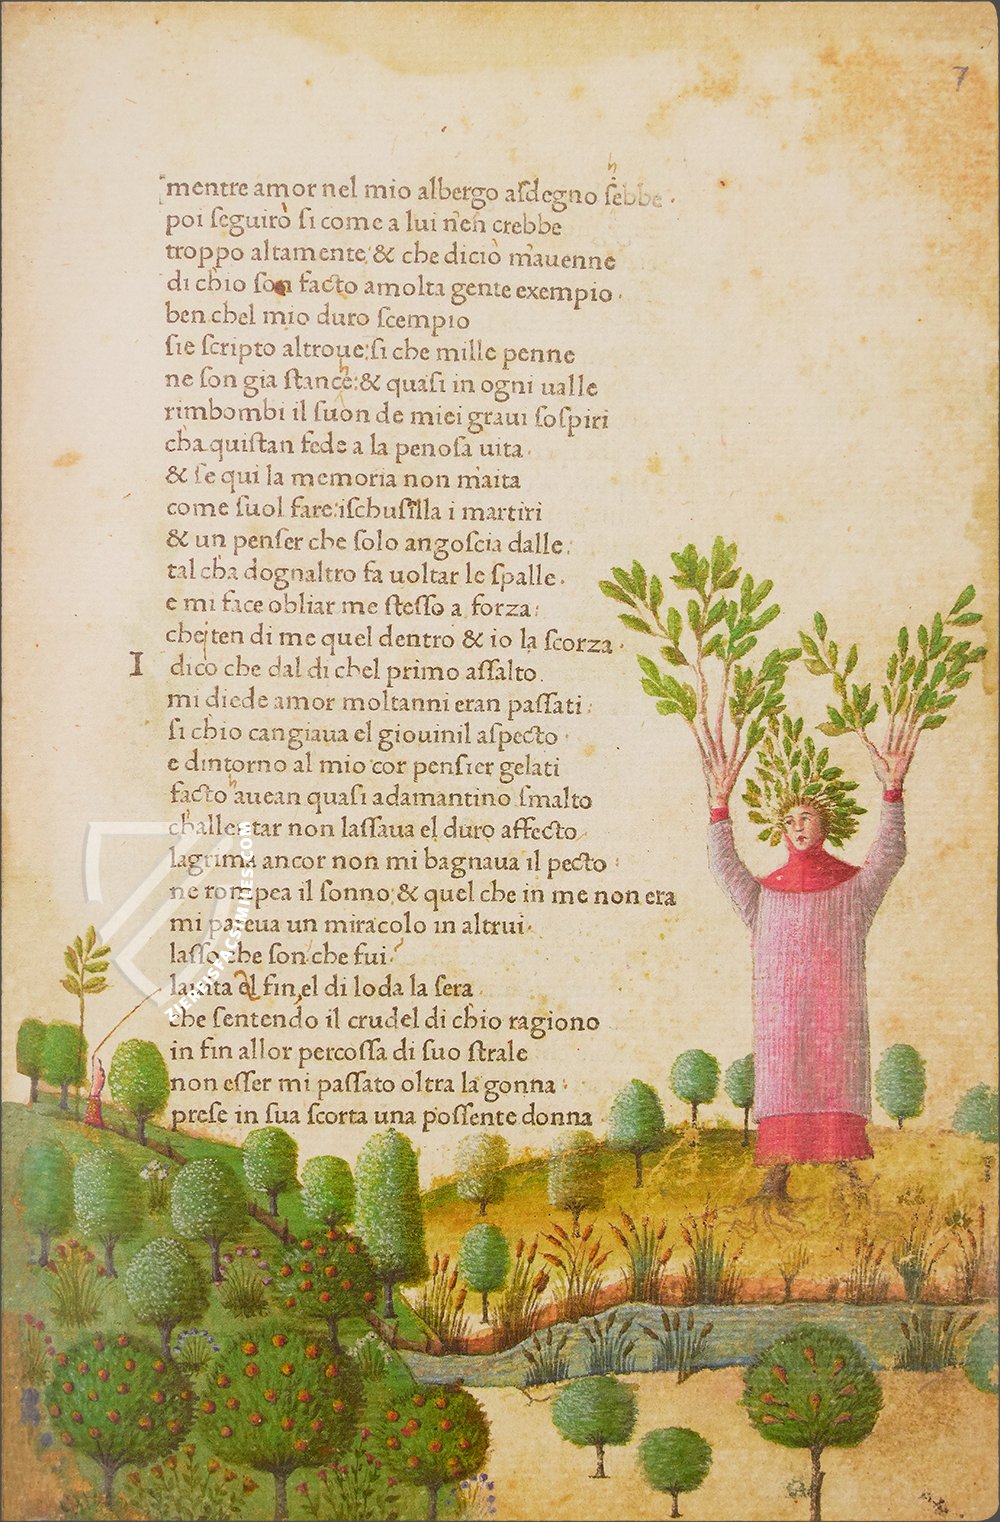 7
mentre amor nel mio albergo aſdegno ſebbe.
poi ſeguirò ſi come a lui nen crebbe
troppo altamente: & che diciò m'auenne
di chio ſon facto amolta gente exempio.
ben chel mio duro ſcempio
ſie ſcripto altroue: ſi che mille penne
ne ſon gia ſtanche: & quaſi in ogni ualle
rimbombi il ſuon de miei graui ſoſpiri
cha quiſtan fede a la penoſa uita.
& ſe qui la memoria non m'aita
come ſuol fare: iſchuſilla i martiri
& un penſer che ſolo angoſcia dalle:
tal cha dognaltro fa uoltar le ſpalle.
e mi face obliar me ſteſſo a forza:
che ten di me quel dentro & io la ſcorza.
I dico che dal di chel primo aſſalto.
mi diede amor moltanni eran paſſati:
ſi chio cangiaua el giouinil aſpecto.
e dintorno al mio cor penſier gelati
facto hauean quaſi adamantino ſmalto
challentar non laſſaua el duro affecto
lagrima ancor non mi bagnaua il pecto:
ne rompea il ſonno: & quel che in me non era
mi pareua un miracolo in altrui.
laſſo che ſon che fui?
la uita el fin, el di loda la ſera.
che ſentendo il crudel di chio ragiono
in fin allor percoſſa di ſuo ſtrale
non eſſer mi paſſato oltra la gonna:
preſe in ſua ſcorta una poſſente donna
ZIEREISFACSIMILES.COM